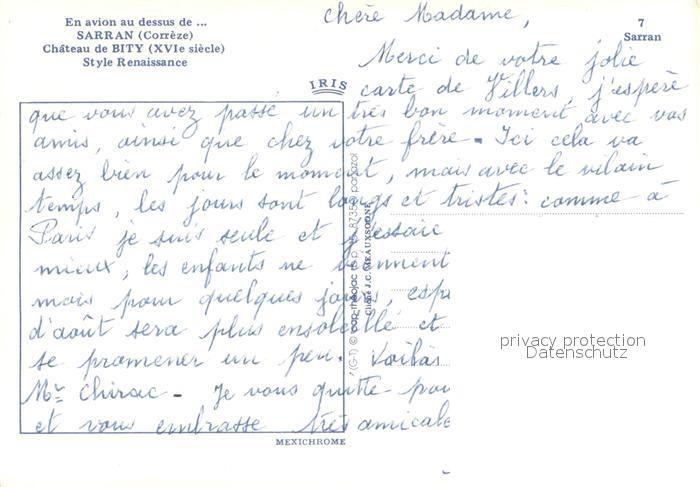 En avion au dessus de ...
SARRAN (Corrèze)
Château de BITY (XVIe siècle)
Style Renaissance
7
Sarran
IRIS
Chère Madame,
Merci de votre jolie
carte de Villers, j'espère
que vous avez passé un très bon moment avec vos
amis, ainsi que chez votre frère - Ici cela va
assez bien pour le moment, mais avec le vilain
temps, les jours sont longs et tristes: comme à
Paris je suis seule et j'essaie
mieux, les enfants ne viennent
mais pour quelques jours, esp
d'août sera plus ensoleillé et
se promener un peu. Voilà
Mr Chirac - Je vous quitte pou
et vous embrasse très amicale
MEXICHROME
Cliché J.C. MEAUXSOONE
privacy protection
Datenschutz